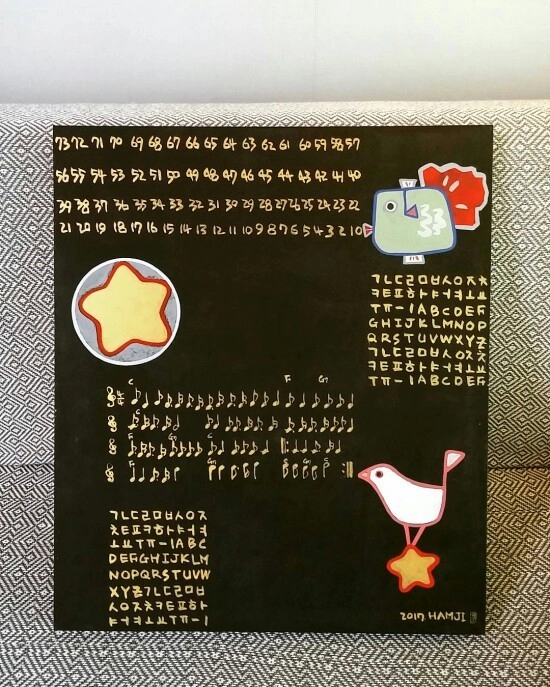 73 72 71 70 69 68 67 66 65 64 63 62 61 60 59 58 57
56 55 54 53 52 51 50 49 48 47 46 45 44 43 42 41 40
39 38 37 36 35 34 33 32 31 30 29 28 27 26 25 24 23 22
21 20 19 18 17 16 15 14 13 12 11 10 9 8 7 6 5 4 3 2 1 0
ㄱㄴㄷㄹㅁㅂㅅㅇㅈㅊ
ㅋㅌㅍㅎㅏㅑㅓㅕㅗㅛ
ㅜㅠㅡㅣABCDEF
GHIJKLMNOP
QRSTUVWXYZ
ㄱㄴㄷㄹㅁㅂㅅㅇㅈㅊ
ㅋㅌㅍㅎㅏㅑㅓㅕㅗㅛ
ㅜㅠㅡㅣABCDEF
C F G7
ㄱㄴㄷㄹㅁㅂㅅㅇㅈ
ㅊㅌㅍㅋㅎㅏㅑㅓㅕ
ㅗㅛㅜㅠㅡㅣABC
DEFGHIJKLM
NOPQRSTUVW
XYZㄱㄴㄷㄹㅁㅂ
ㅅㅇㅈㅊㅋㅌㅍㅎㅏ
ㅑㅓㅕㅗㅛㅜㅠㅡㅣ
2017 HAMJI